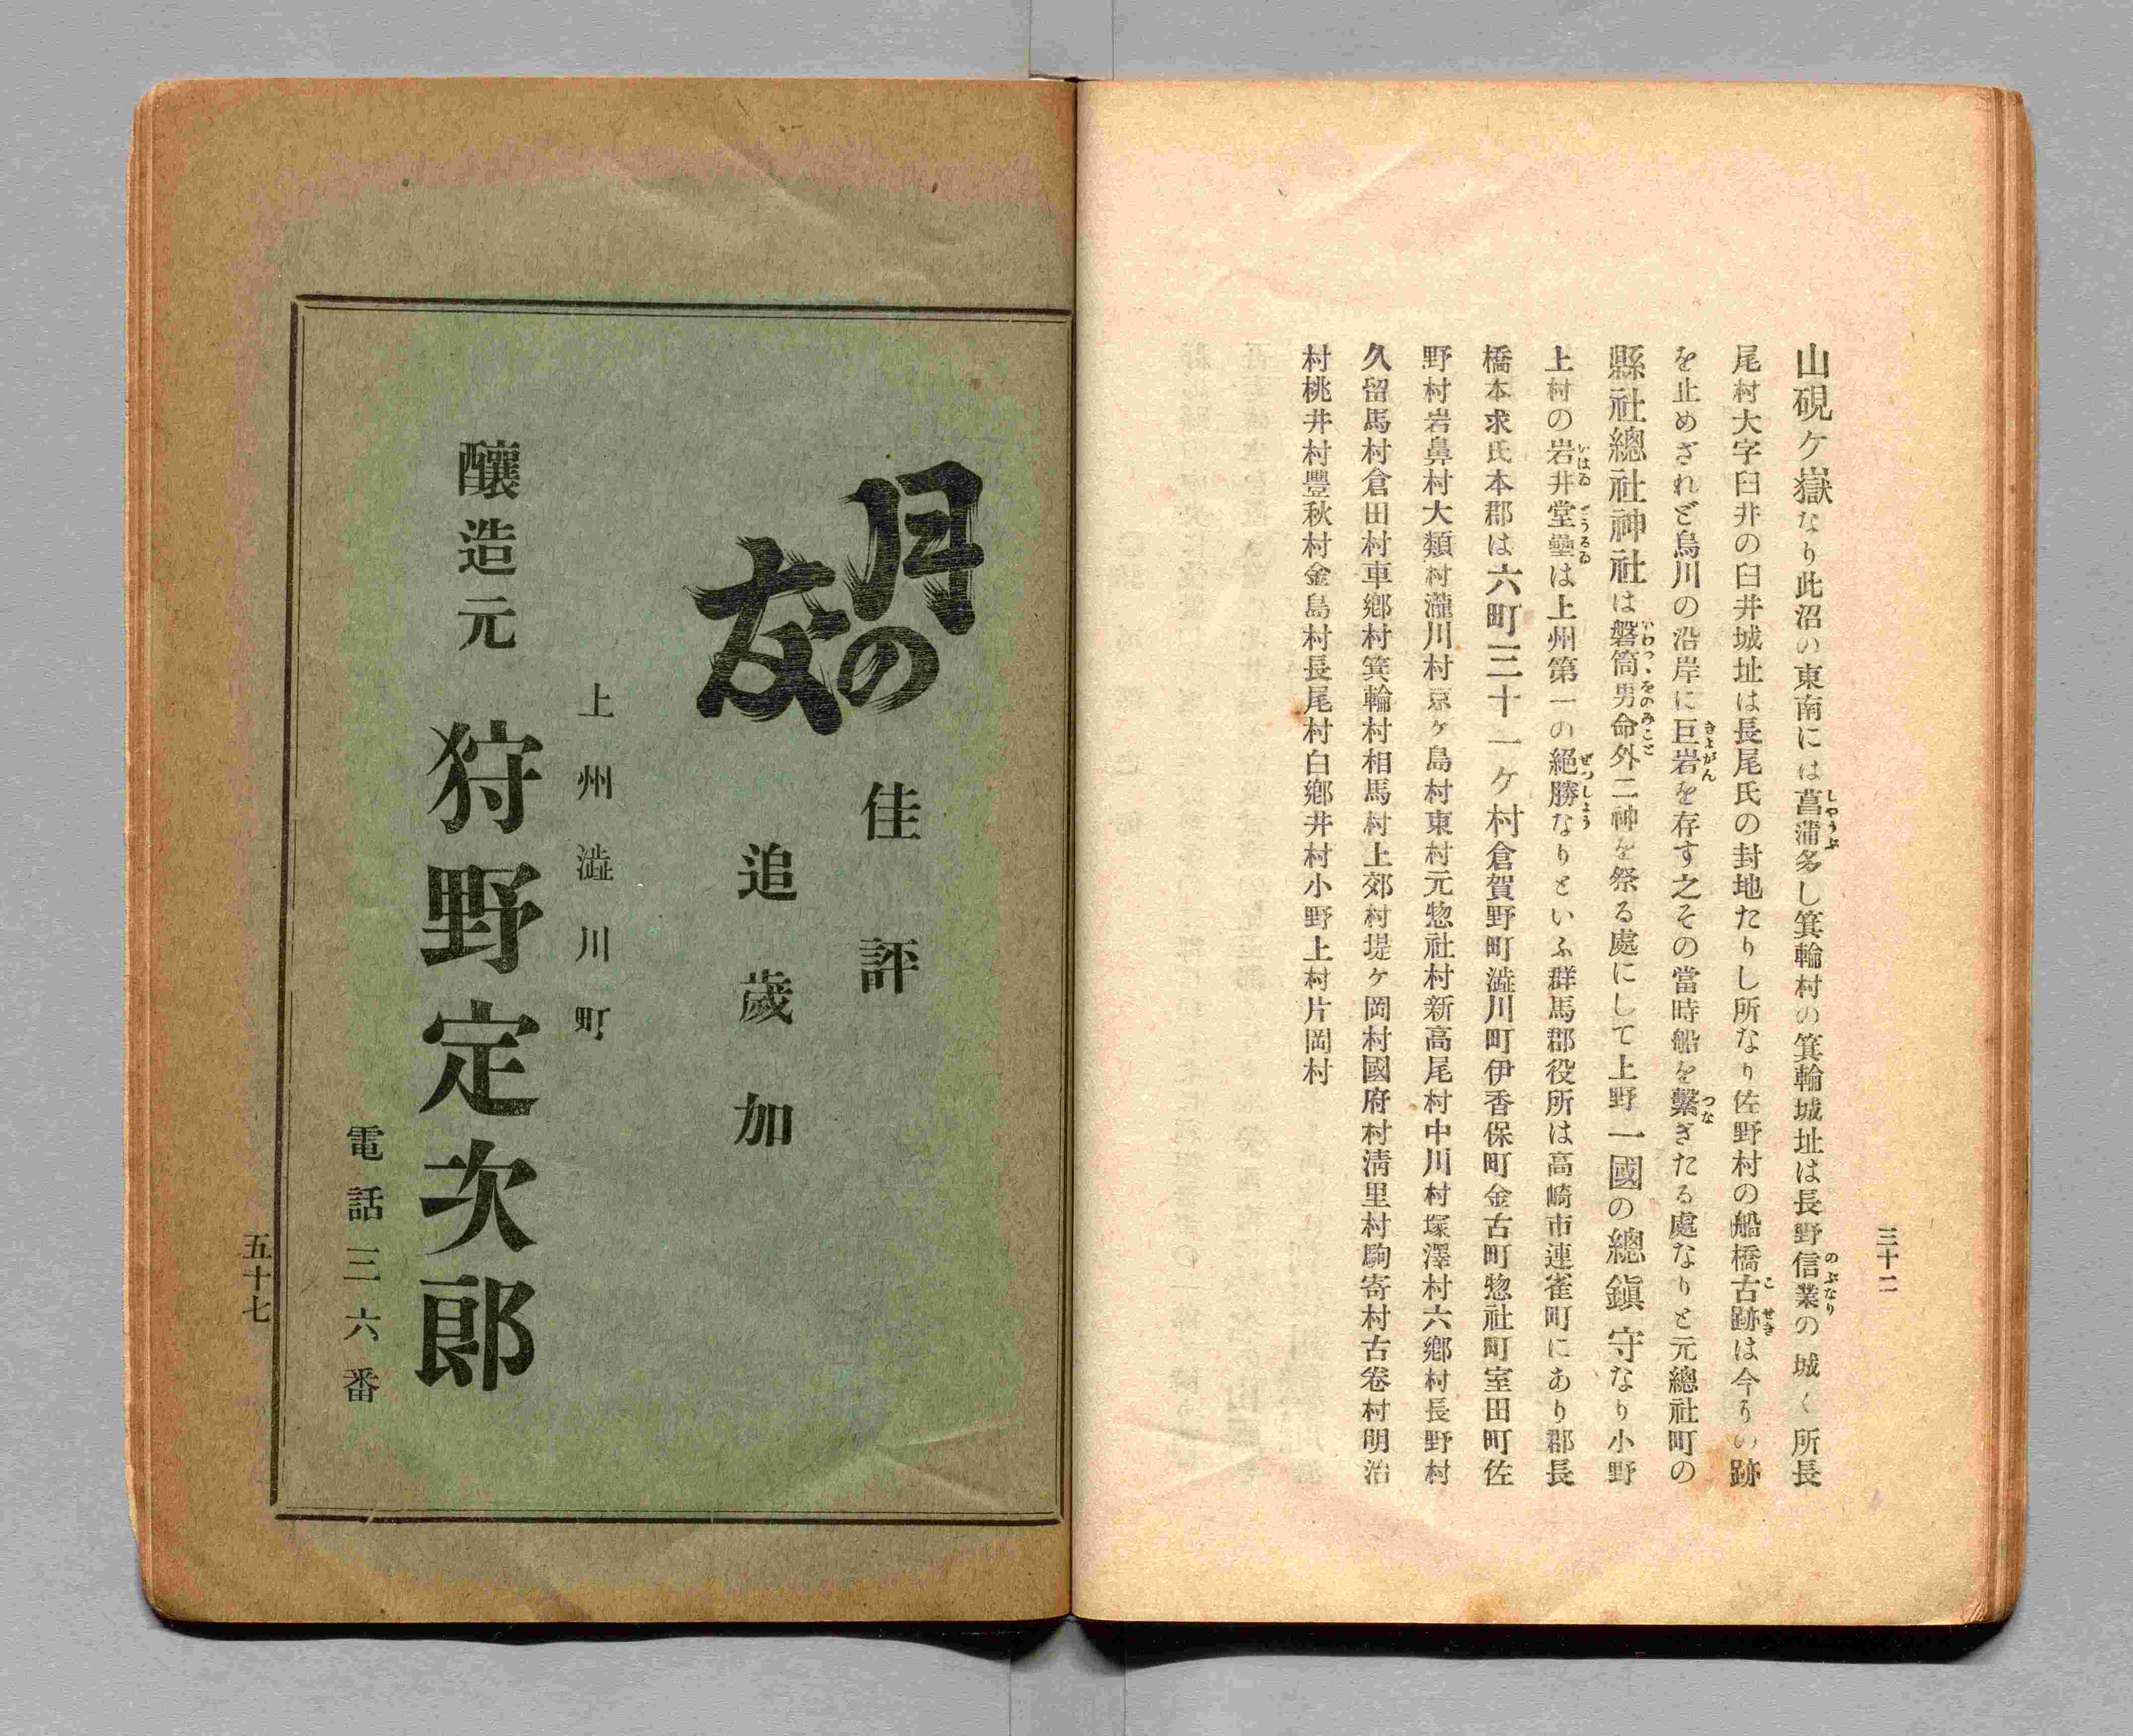 三十二
山硯ケ嶽なり此沼の東南には菖蒲多し箕輪村の箕輪城址は長野信業の城く所長
尾村大字臼井の臼井城址は長尾氏の封地たりし所なり佐野村の船橋古跡は今その跡
を止めざれど烏川の沿岸に巨岩を存す之その當時船を繫ぎたる處なりと元總社町の
縣社總社神社は磐筒男命外二神を祭る處にして上野一國の總鎭守なり小野
上村の岩井堂壘は上州第一の絕勝なりといふ群馬郡役所は高崎市連雀町にあり郡長
橋本求氏本郡は六町三十一ケ村倉賀野町澁川町伊香保町金古町惣社町室田町佐
野村岩鼻村大類村瀧川村京ケ島村東村元惣社村新高尾村中川村塚澤村六鄕村長野村
久留馬村倉田村車鄕村箕輪村相馬村上郊村堤ケ岡村國府村淸里村駒寄村古卷村明治
村桃井村豐秋村金島村長尾村白鄕井村小野上村片岡村
月の友
佳評
追歲加
上州澁川町
釀造元 狩野定次郎
電話三六番
五十七